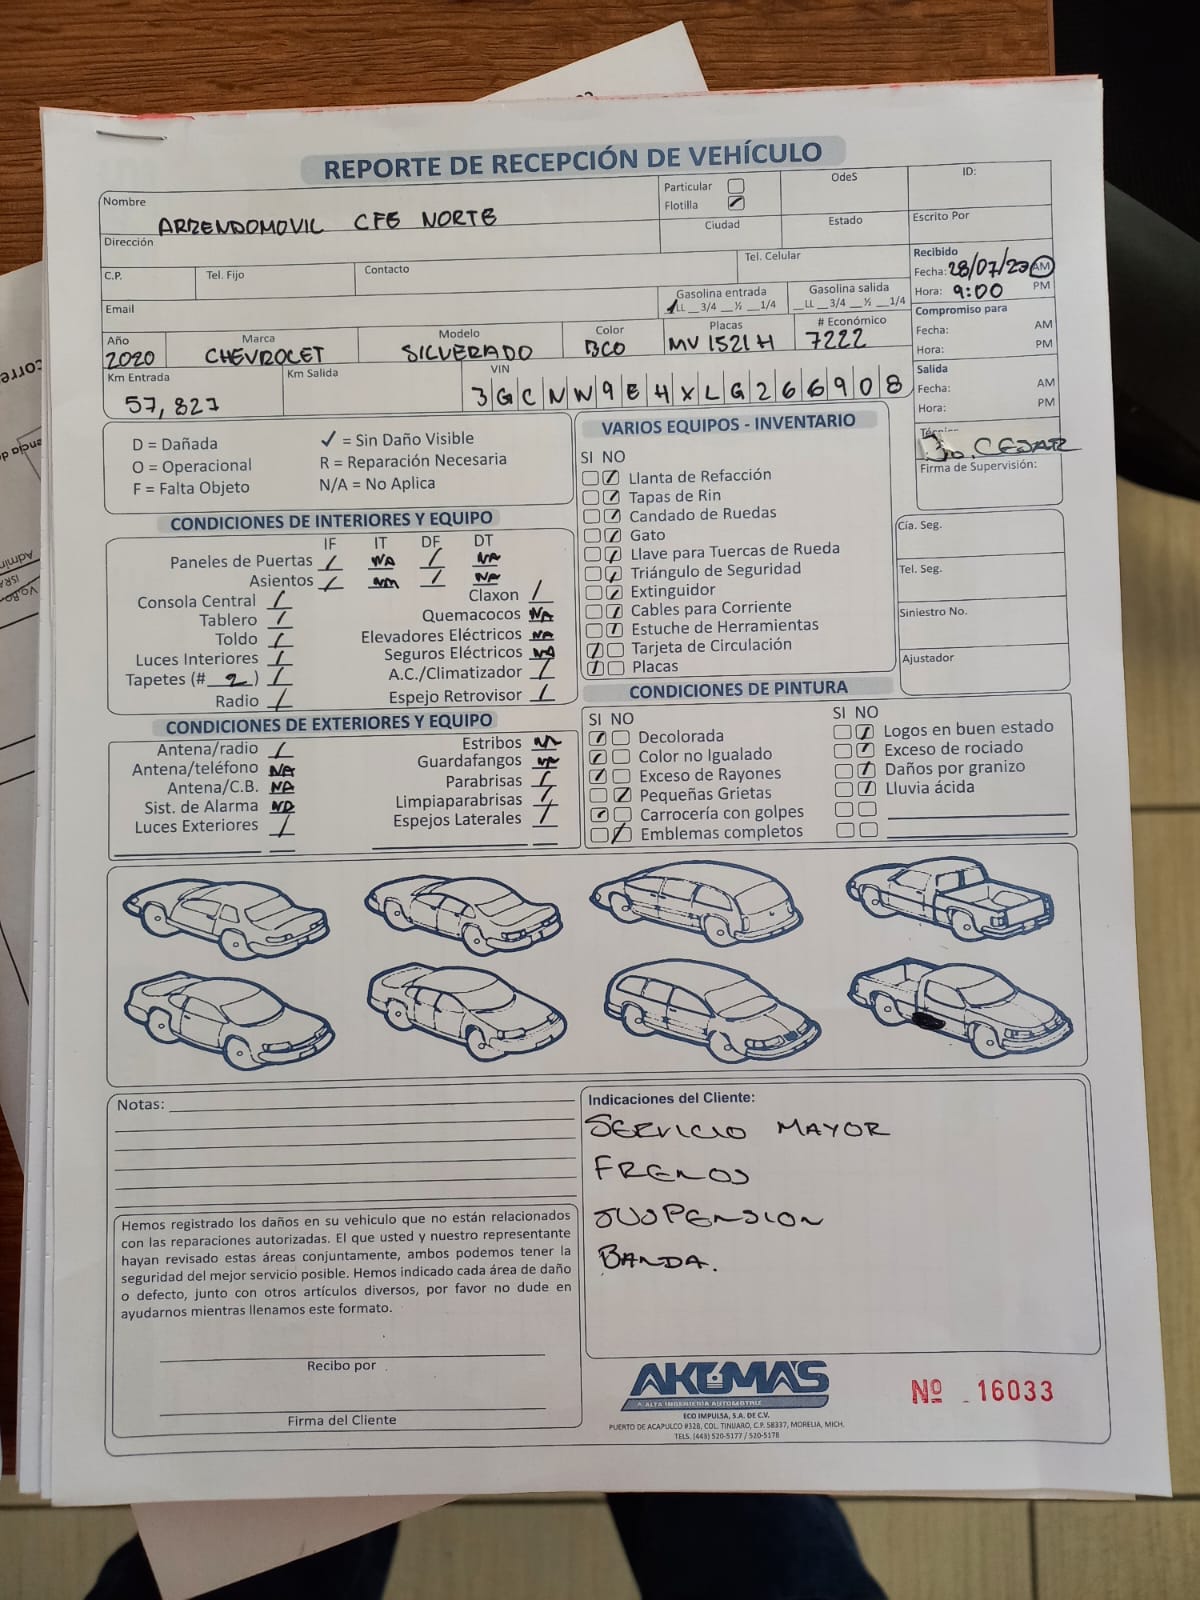 REPORTE DE RECEPCIÓN DE VEHÍCULO
Nombre
ARRENDOMOVIL CFE NORTE
Particular
Flotilla ✓
OdeS
ID:
Dirección
Ciudad
Estado
Escrito Por
C.P.
Tel. Fijo
Contacto
Tel. Celular
Recibido
Fecha: 28/07/23 AM
Hora: 9:00 PM
Email
Gasolina entrada
LL __3/4 __½ __1/4
Gasolina salida
__LL __3/4 __½ __1/4
Compromiso para
Fecha: AM
Hora: PM
Año
2020
Marca
CHEVROLET
Modelo
SILVERADO
Color
BCO
Placas
MV 1521 H
# Económico
7222
Km Entrada
57,827
Km Salida
VIN
3GCNW9EHXLG266908
Salida
Fecha: AM
Hora: PM
CESAR
Firma de Supervisión:
Cía. Seg.
Tel. Seg.
Siniestro No.
Ajustador
D = Dañada
O = Operacional
F = Falta Objeto
✓ = Sin Daño Visible
R = Reparación Necesaria
N/A = No Aplica
CONDICIONES DE INTERIORES Y EQUIPO
IF IT DF DT
Paneles de Puertas / NA / NA
Asientos / NA / NA
Consola Central /
Tablero /
Toldo /
Luces Interiores /
Tapetes (# 2 ) /
Radio /
Claxon /
Quemacocos NA
Elevadores Eléctricos NA
Seguros Eléctricos NA
A.C./Climatizador /
Espejo Retrovisor /
CONDICIONES DE EXTERIORES Y EQUIPO
Antena/radio /
Antena/teléfono NA
Antena/C.B. NA
Sist. de Alarma NA
Luces Exteriores /
Estribos NA
Guardafangos NA
Parabrisas /
Limpiaparabrisas /
Espejos Laterales /
VARIOS EQUIPOS - INVENTARIO
SI NO
Llanta de Refacción
Tapas de Rin
Candado de Ruedas
Gato
Llave para Tuercas de Rueda
Triángulo de Seguridad
Extinguidor
Cables para Corriente
Estuche de Herramientas
Tarjeta de Circulación
Placas
CONDICIONES DE PINTURA
SI NO
Decolorada
Color no Igualado
Exceso de Rayones
Pequeñas Grietas
Carrocería con golpes
Emblemas completos
SI NO
Logos en buen estado
Exceso de rociado
Daños por granizo
Lluvia ácida
Notas:
Hemos registrado los daños en su vehiculo que no están relacionados
con las reparaciones autorizadas. El que usted y nuestro representante
hayan revisado estas áreas conjuntamente, ambos podemos tener la
seguridad del mejor servicio posible. Hemos indicado cada área de daño
o defecto, junto con otros artículos diversos, por favor no dude en
ayudarnos mientras llenamos este formato.
Recibo por
Firma del Cliente
Indicaciones del Cliente:
SERVICIO MAYOR
FRENOS
SUSPENSION
BANDA.
AKUMAS
ALTA INGENIERIA AUTOMOTRIZ
ECO IMPULSA, S.A. DE C.V.
PUERTO DE ACAPULCO #328, COL. TINIJARO, C.P. 58337, MORELIA, MICH.
TELS. (443) 520-5177 / 520-5178
Nº 16033